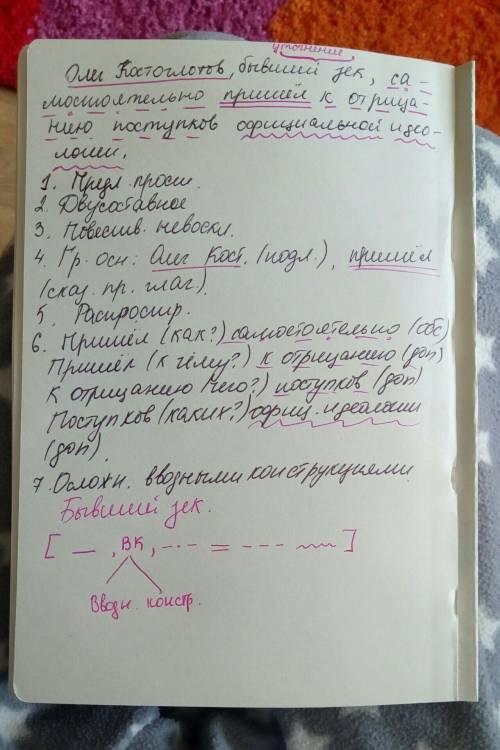 уточнение
Олег Костоглотов, бывший зек, са-
мостоятельно пришёл к отрица-
нию поступков официальной идео-
логии.
1. Предл. прост.
2. Двусоставное
3. Повеств. невоскл.
4. Гр. осн: Олег Кост. (подл.), пришёл
(сказ. пр. глаг.)
5. Распростр.
6. Пришёл (как?) самостоятельно (обс)
Пришёл (к чему?) к отрицанию (доп)
К отрицанию (чего?) поступков (доп)
Поступков (каких?) офиц. идеологии
(доп).
7. Осложн. вводными конструкциями.
Бывший зек.
[ — , ВК, -·-· = --- ~~~ ]
Вводн. констр.